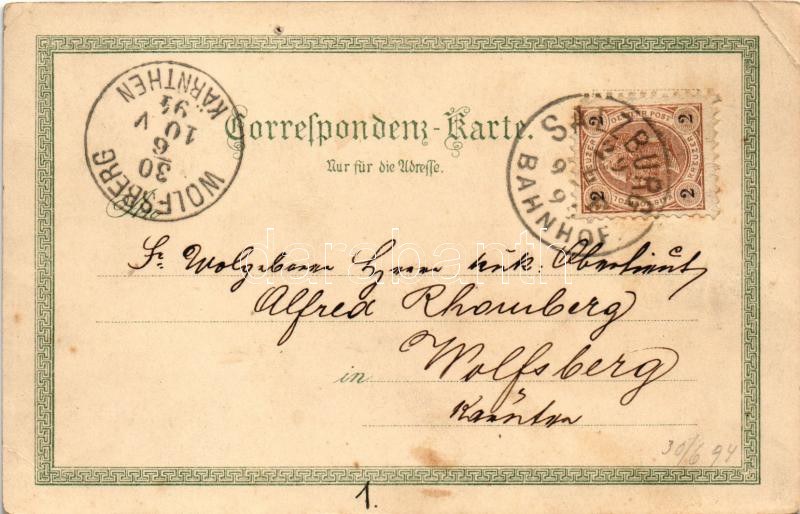 WOLFSBERG
KÄRNTHEN
30
6
10 V
94
Correspondenz-Karte.
Nur für die Adresse.
SALZBURG
BAHNHOF
29
6
2 2
2 2
KREUZER
Sr. Wolgeboren Herrn kuk. Oberlieut
Alfred Rhomberg
in Wolfsberg
Kärnten
30/6 94
1.
darabanth